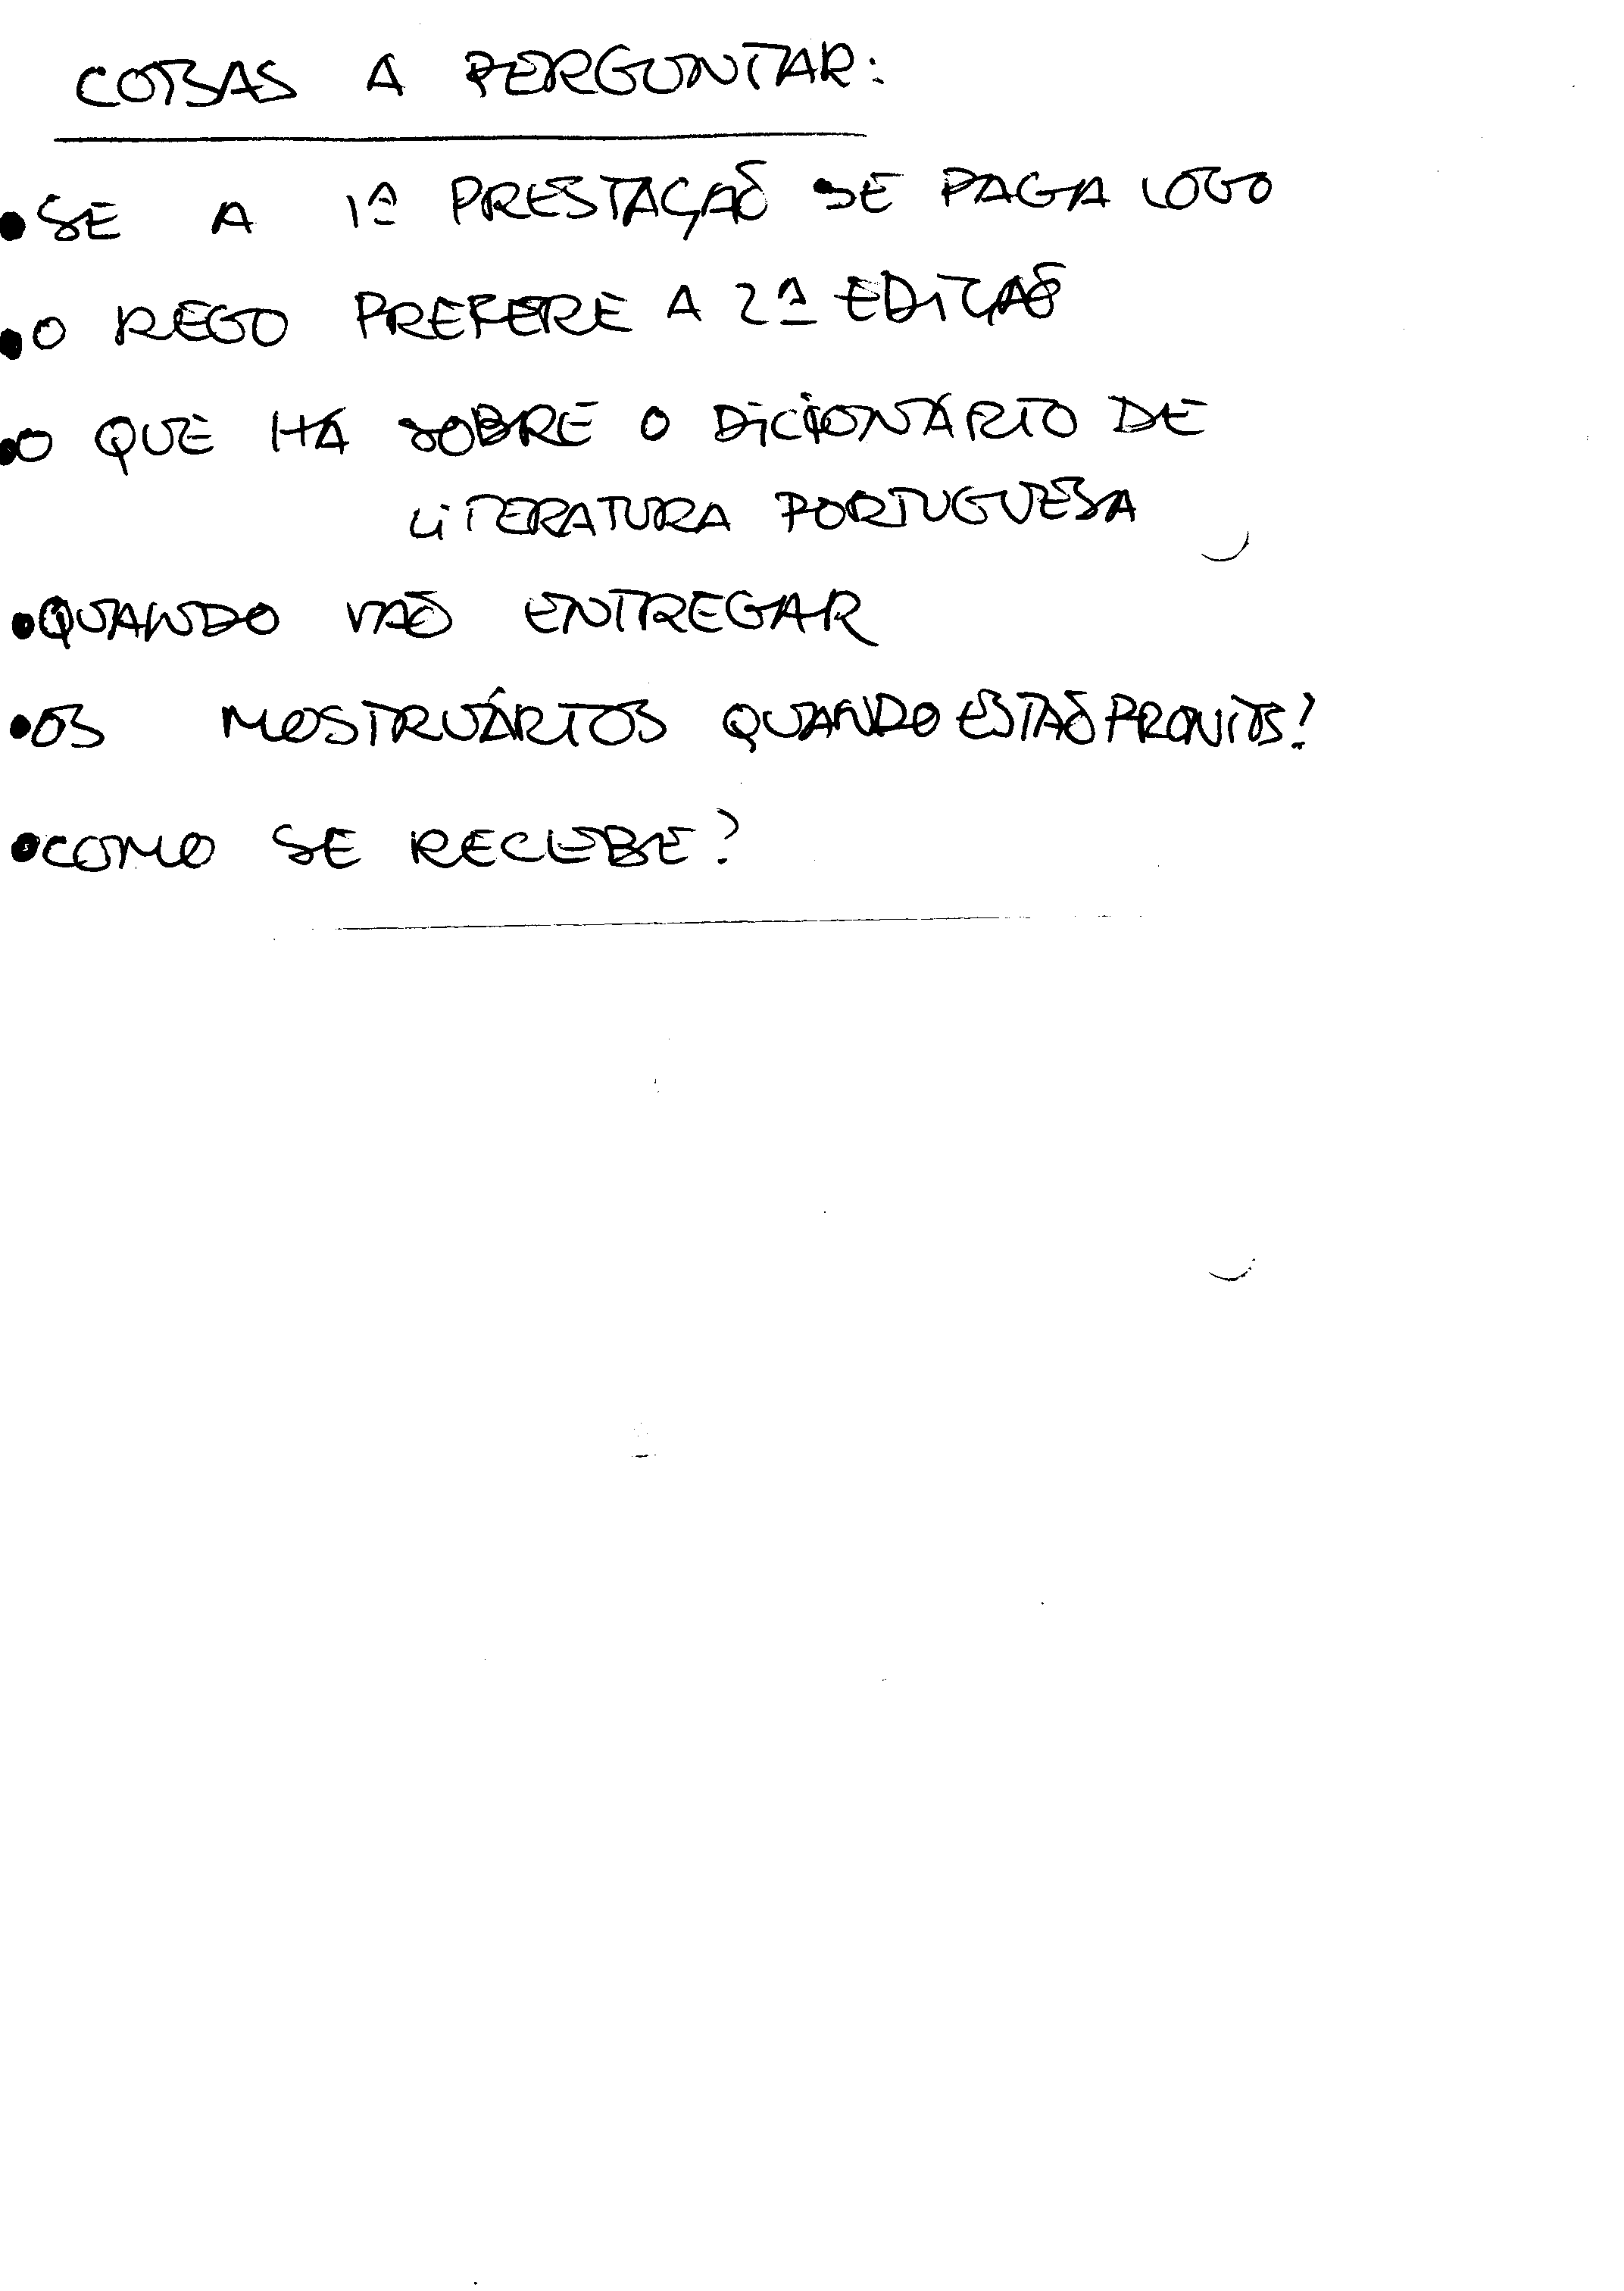 COISAS A PERGUNTAR:
•SE A 1ª PRESTAÇÃO SE PAGA LOGO
•O REGO PREFERE A 2ª EDIÇÃO
•O QUE HÁ SOBRE O DICIONÁRIO DE
LITERATURA PORTUGUESA
•QUANDO VÃO ENTREGAR
•OS MOSTRUÁRIOS QUANDO ESTÃO PRONTOS?
•COMO SE RECEBE?